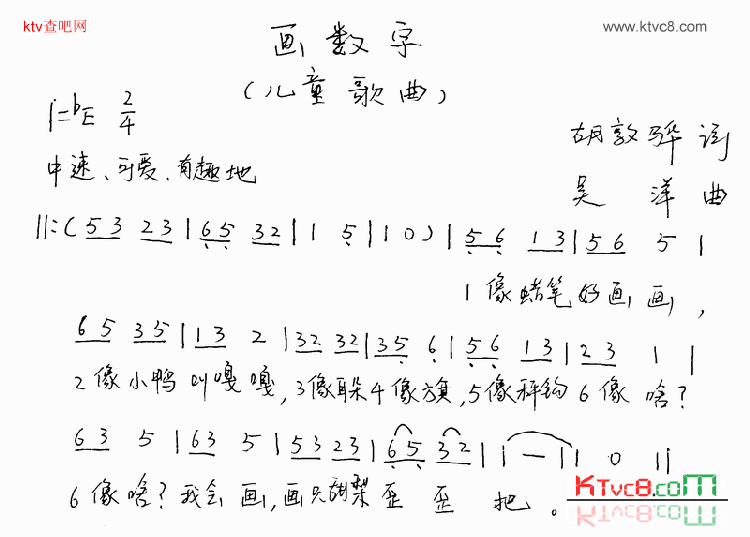 ktv查吧网
www.ktvc8.com
画数字
(儿童歌曲)
1=♭E 2/4
胡敦骅 词
中速、可爱、有趣地
吴 洋 曲
||:(5 3 2 3|6 5 3 2|1 5|1 0)|5 6 1 3|5 6 5|
1像蜡笔好画画,
6 5 3 5|1 3 2|3 2 3 2|3 5 6|5 6 1 3|2 3 1 1|
2像小鸭叫嘎嘎,3像耳朵4像旗,5像秤钩6像啥?
6 3 5|6 3 5|5 3 2 3|6 5 3 2|1 -|1 0||
6像啥?我会画,画只 歪歪把。
KTvc8.com